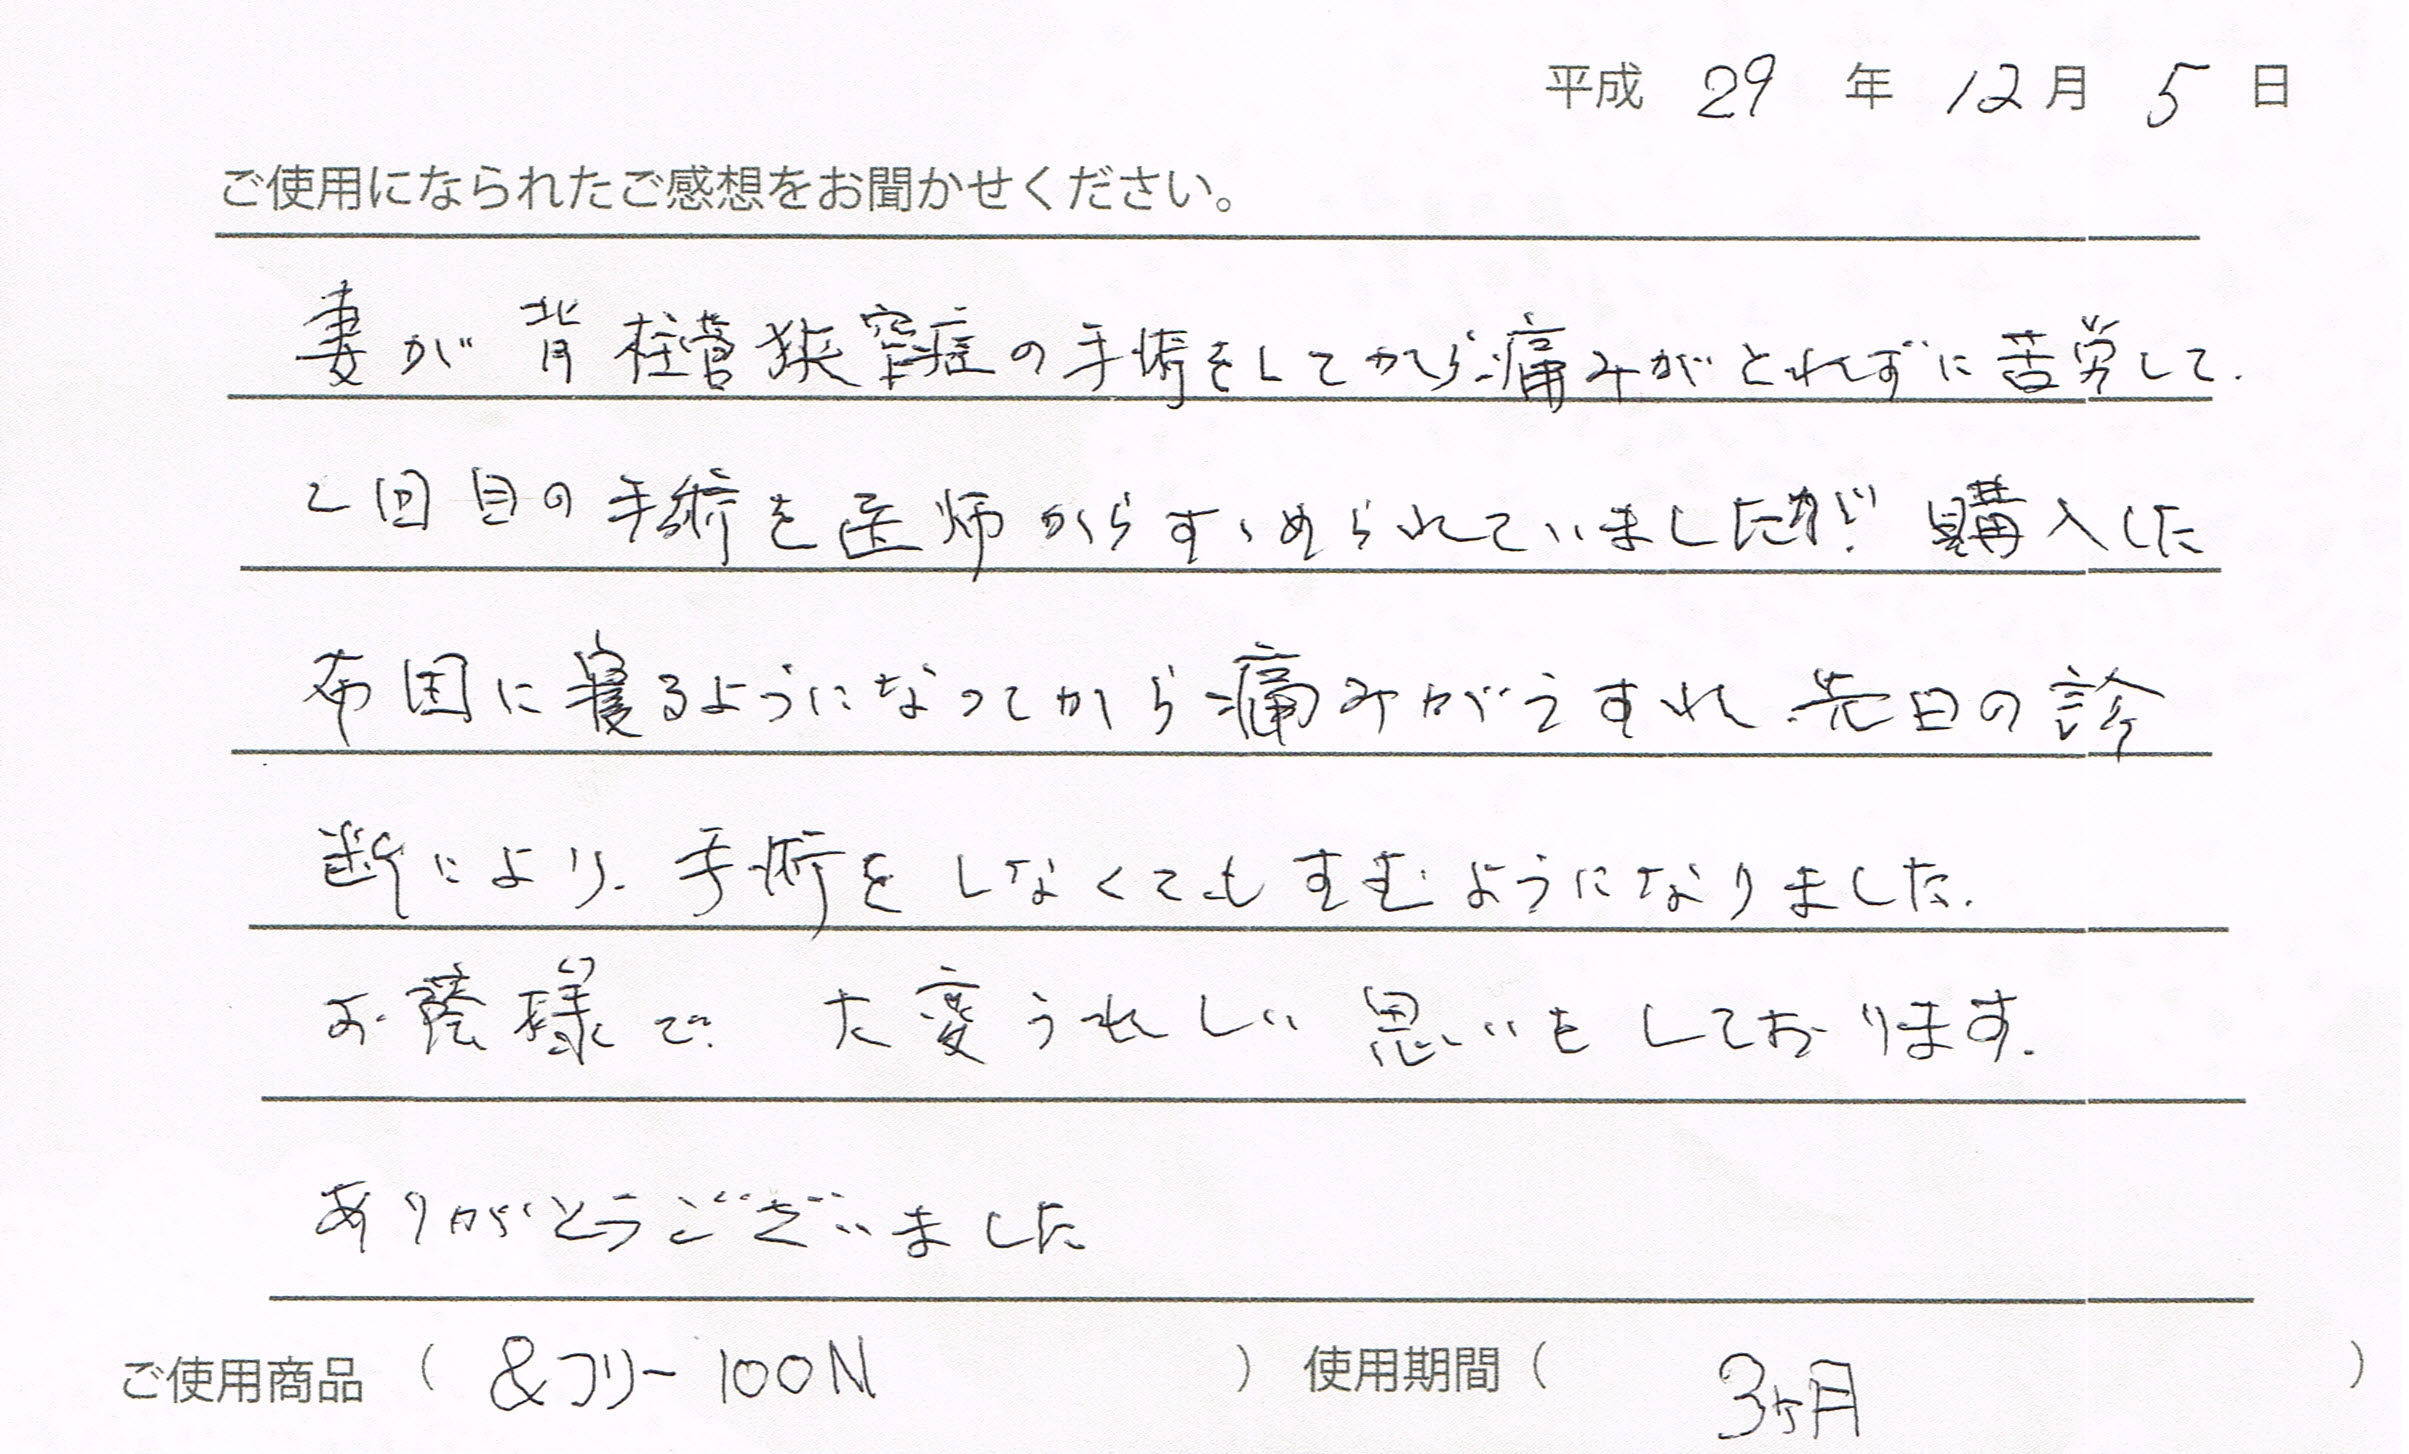 平成 29 年 12月 5 日
ご使用になられたご感想をお聞かせください。
妻が背柱管狭窄症の手術をしてから痛みがとれずに苦労して.
2回目の手術を医師からすゝめられていましたが! 購入した
布団に寝るようになってから痛みがうすれ.先日の診
断により.手術をしなくてもすむようになりました.
お蔭様で.大変うれしい思いをしております.
ありがとうございました
ご使用商品 ( &フリー 100N ) 使用期間 ( 3ヶ月 )